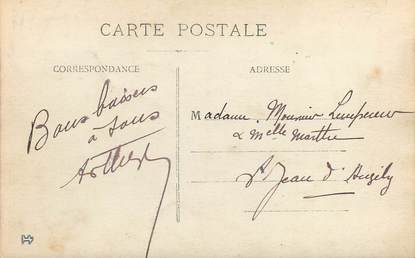 CARTE POSTALE
CORRESPONDANCE
Bons baisers
à tous
ADRESSE
Madame Mounier
& Melle Marthe
St Jean d'Angély